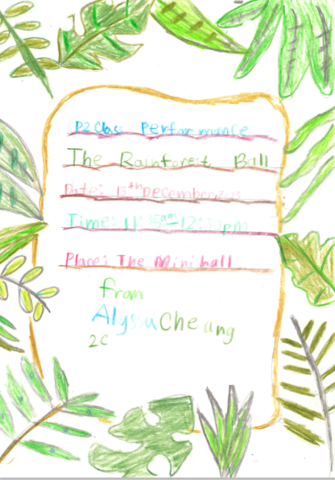 P2 Class Performance
The Rainforest Ball
Date: 13th December
Time: 11:
Place: The Mini hall
from
Alyssa Cheung
2C